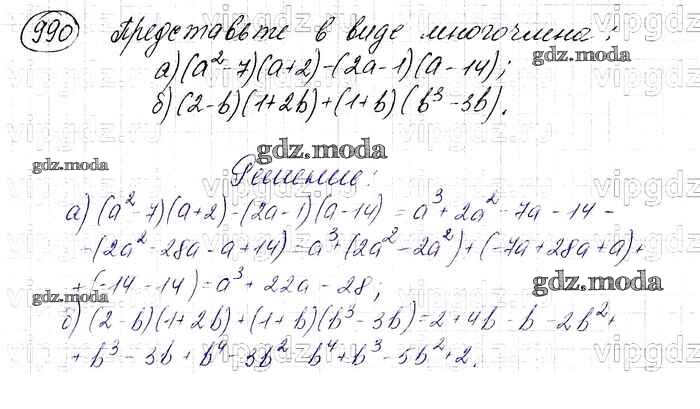 990 Представьте в виде многочлена:
а) (a² - 7)(a + 2) - (2a - 1)(a - 14);
б) (2 - b)(1 + 2b) + (1 + b)(b³ - 3b).
Решение:
а) (a² - 7)(a + 2) - (2a - 1)(a - 14) = a³ + 2a² - 7a - 14 -
- (2a² - 28a - a + 14) = a³ + (2a² - 2a²) + (-7a + 28a + a) +
+ (-14 - 14) = a³ + 22a - 28;
б) (2 - b)(1 + 2b) + (1 + b)(b³ - 3b) = 2 + 4b - b - 2b² +
+ b³ - 3b + b⁴ - 3b² = b⁴ + b³ - 5b² + 2.
gdz.moda
gdz.moda
gdz.moda
gdz.moda
gdz.moda
gdz.moda